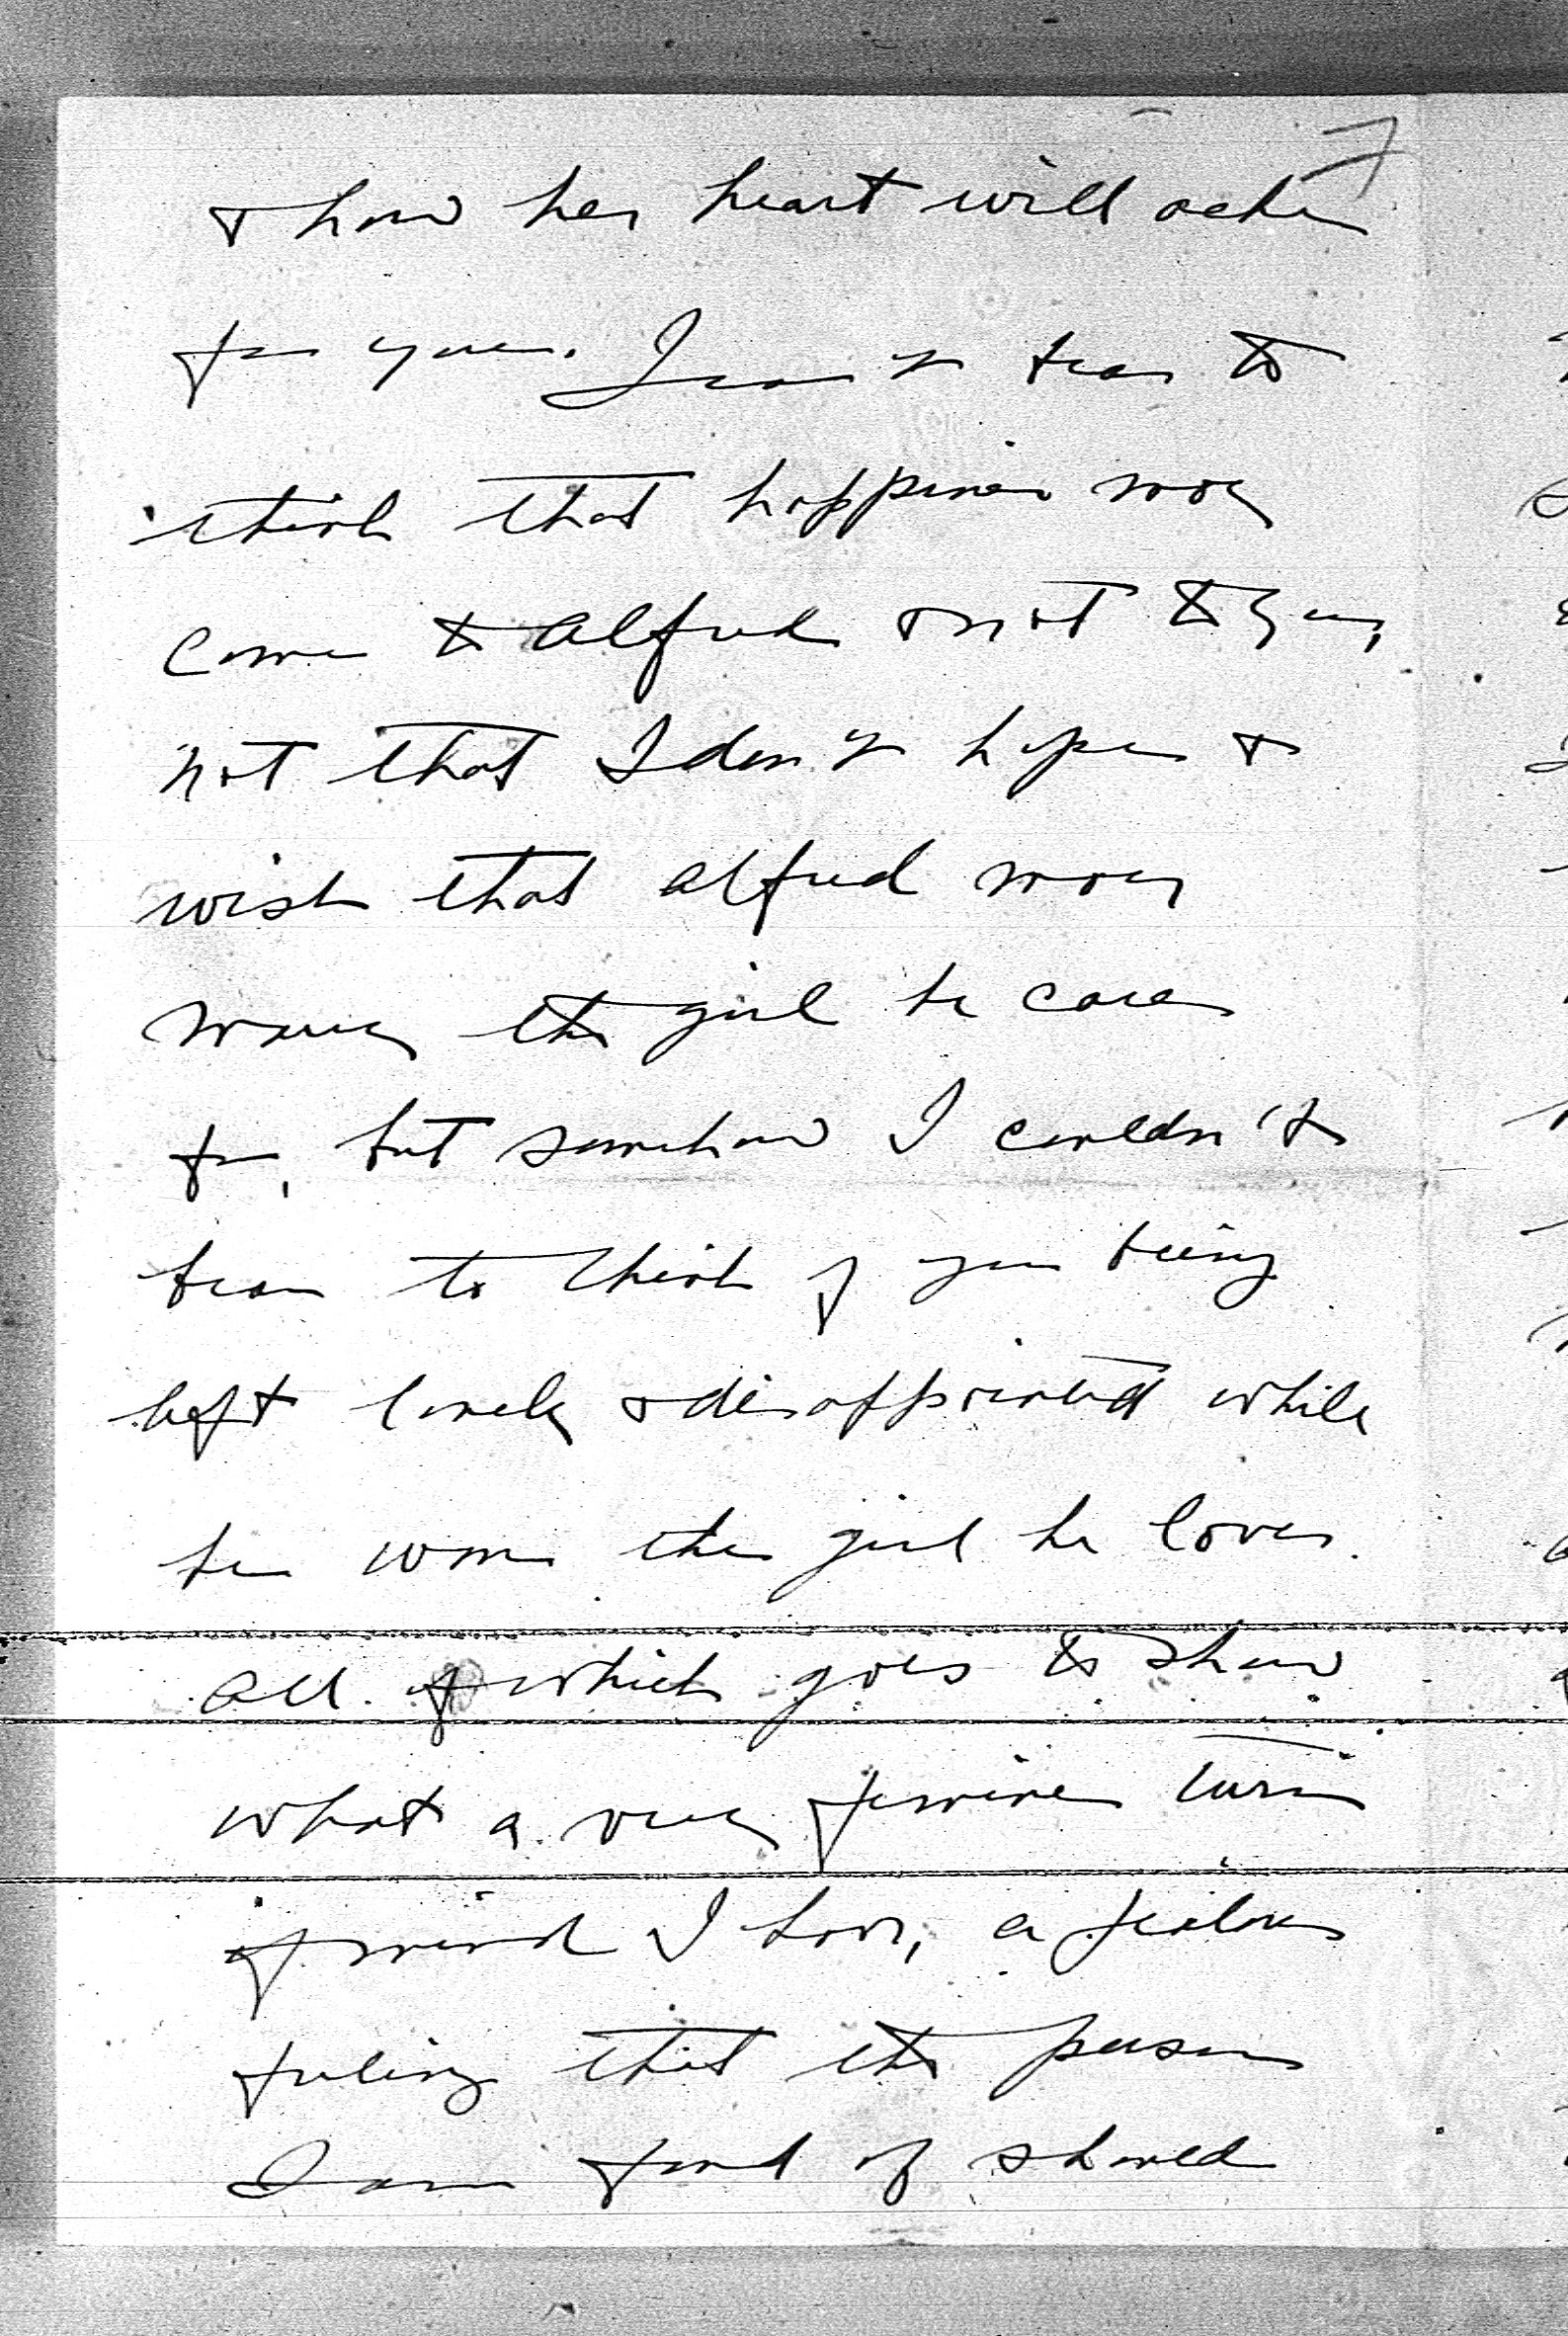 7
& how her heart will ache
for you. I can't bear to
think that happiness may
come to Alfred & not to you,
not that I don't hope &
wish that Alfred may
marry the girl he cares
for, but somehow I couldn't
bear to think of you being
left lonely & disappointed while
he won the girl he loves.
All of which goes to show
what a very feminine turn
of mind I have, a jealous
feeling that the person
I am fond of should